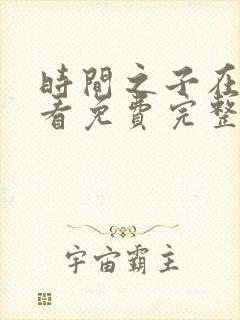 時間之子在
看免費完整
宇宙霸主